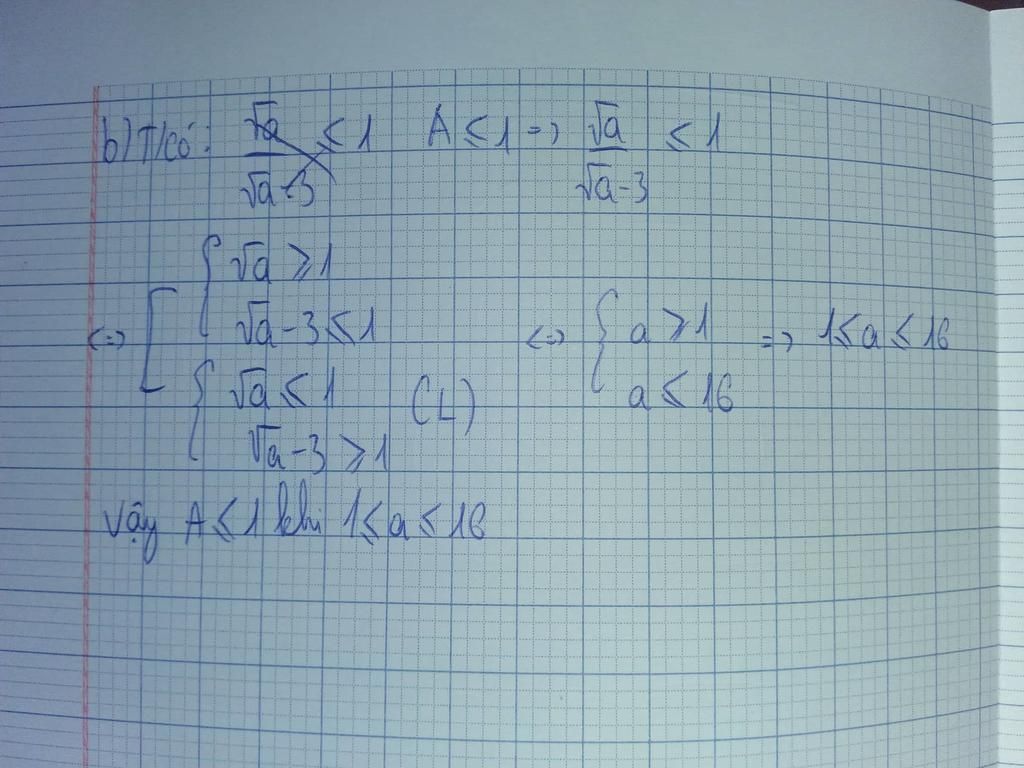 b) T/có: √a/√a-3 ≤ 1 A ≤ 1 => √a/√a-3 ≤ 1
√a ≥ 1
<=> √a - 3 ≤ 1 <=> a ≥ 1 => 1 ≤ a ≤ 16
√a ≤ 1 (L) a ≤ 16
√a - 3 ≥ 1
Vậy A ≤ 1 khi 1 ≤ a ≤ 16